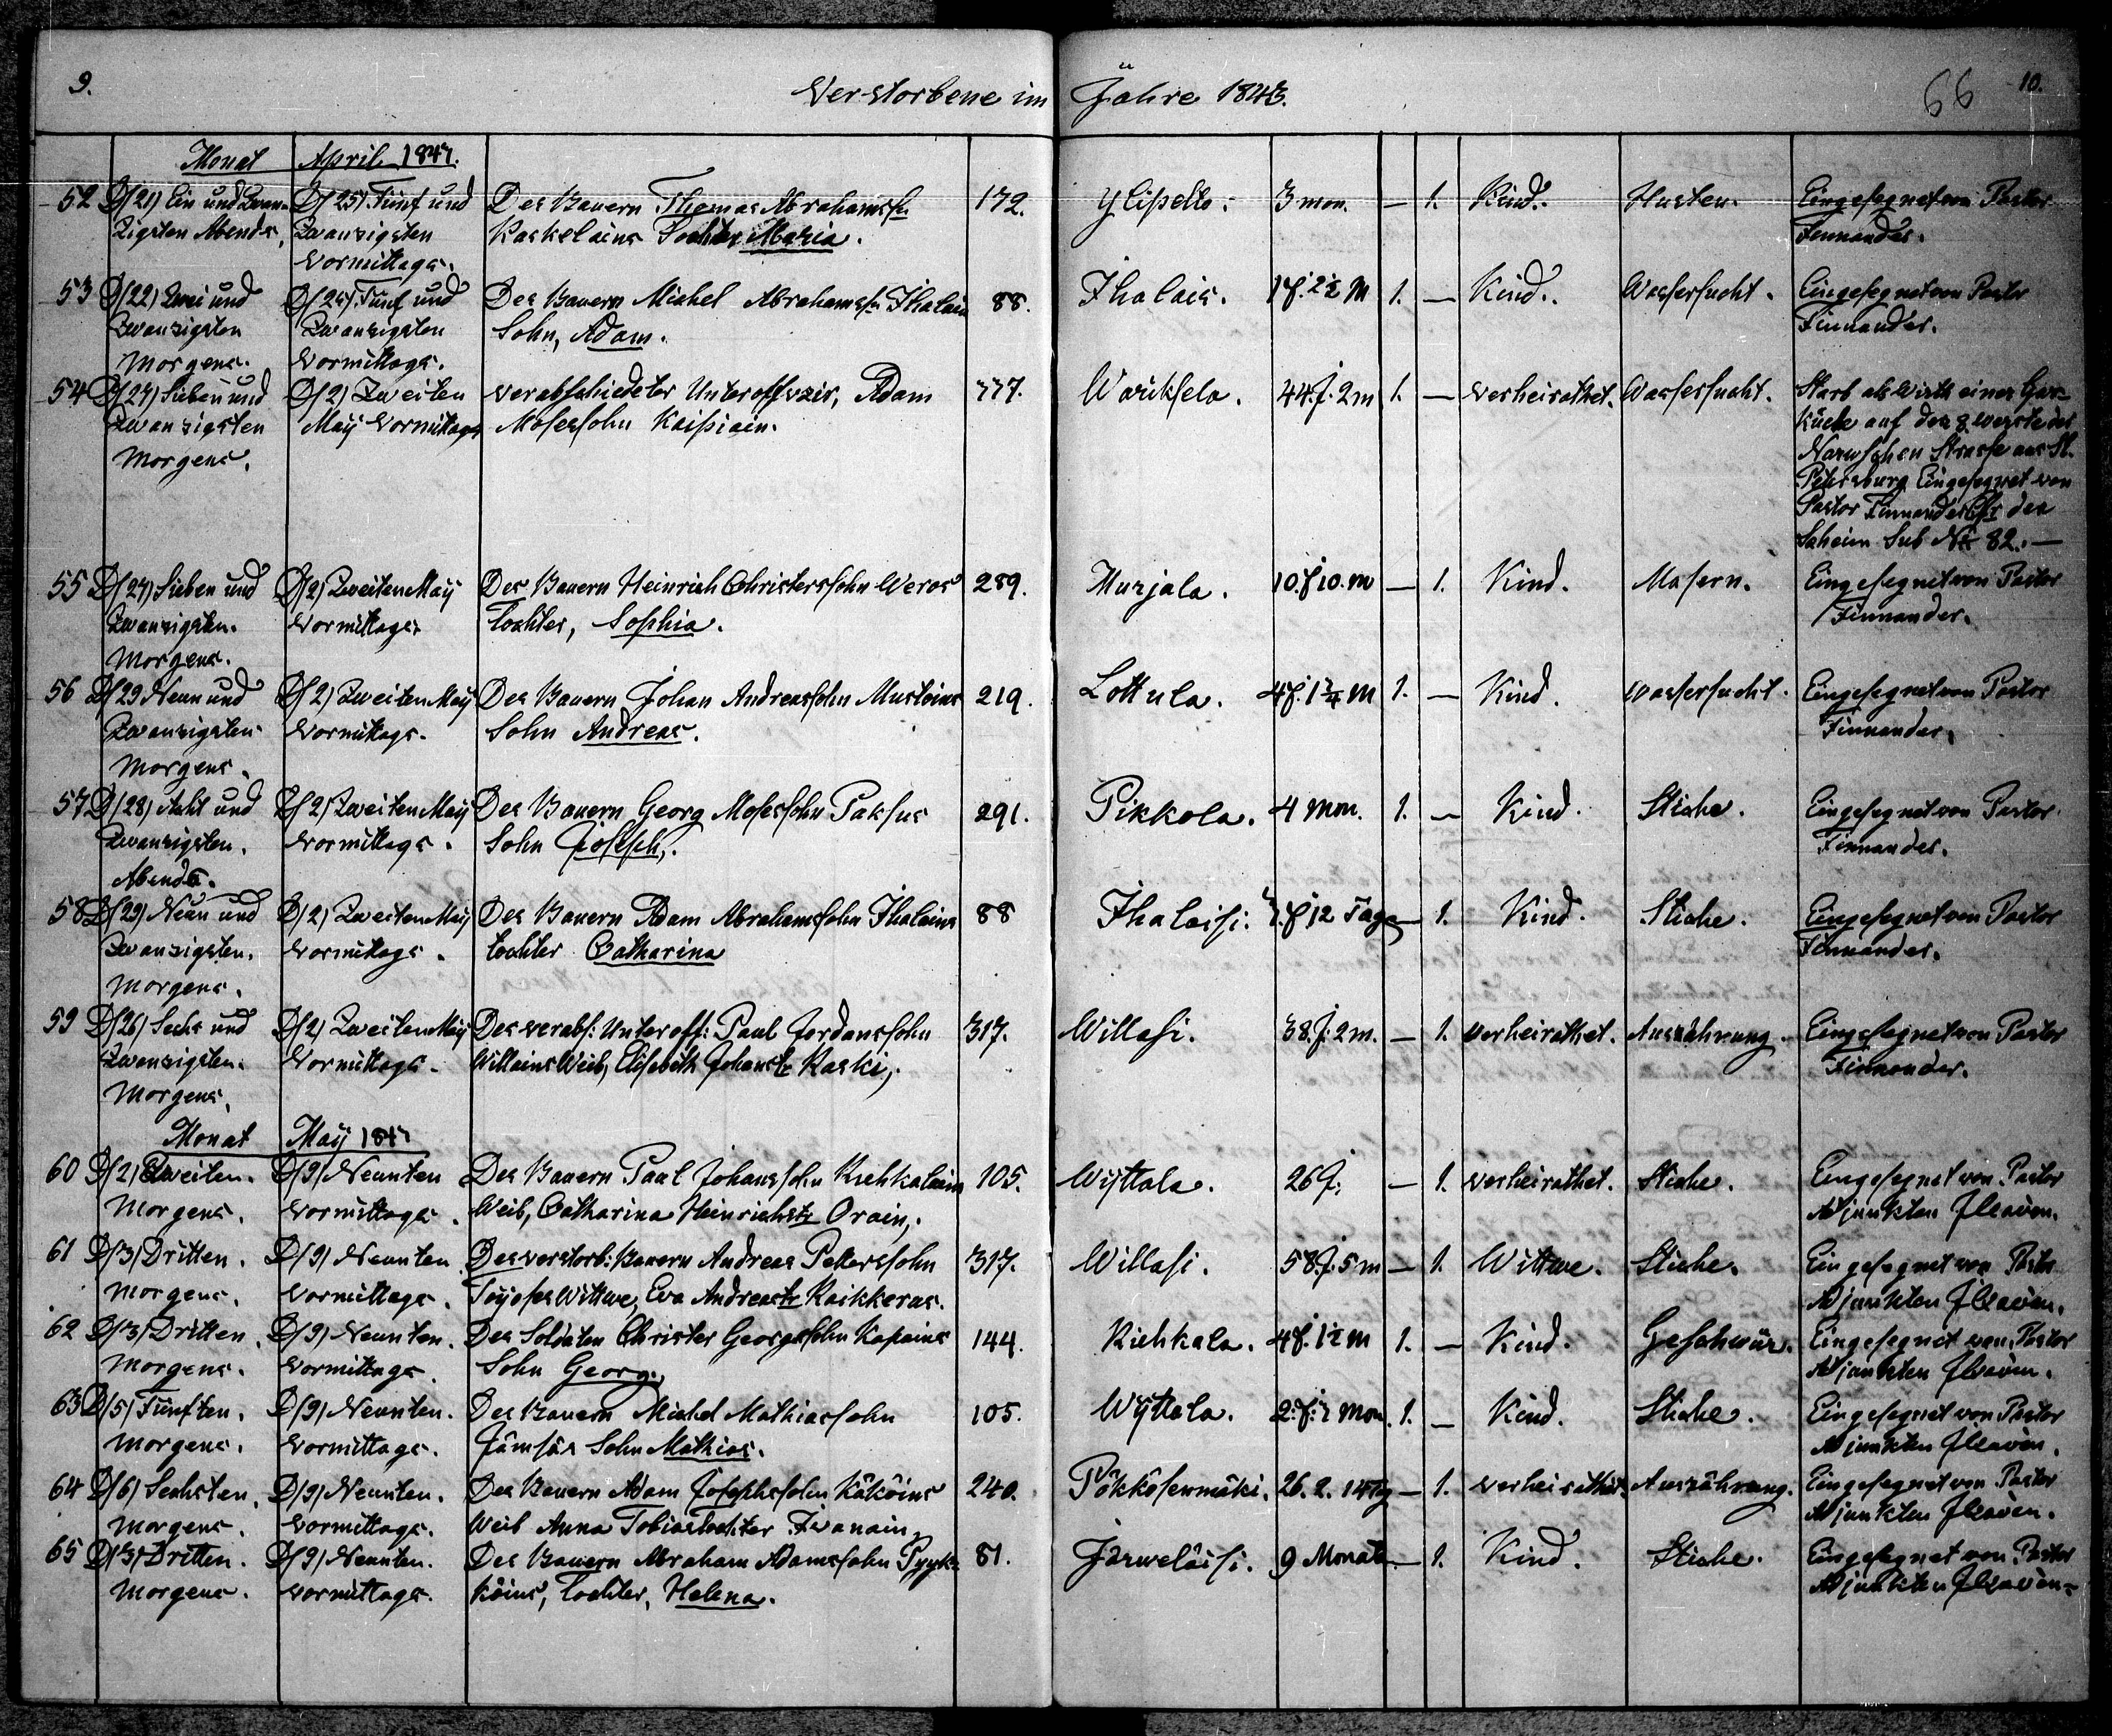 9.
Verstorbene im Jahre 1843.
66
10.
Monat April 1847.
52 D/21) Ein und Zwan- D/25) Fünf und Des Bauern Thomas Abrahamss. 172. Ylipelto. 3 mon. — 1. Kind. Husten. Eingesegnet von Pastor
zigsten Abends, Zwanzigsten Kaskelains Tochter Maria. Finnander.
Vormittags.
53 D/22) Zwei und D/25) Fünf und Des Bauern Michel Abrahamss. Ihalain 88. Ihalais. 1 J. 2½ M 1. — Kind. Wassersucht. Eingesegnet von Pastor
Zwanzigsten Zwanzigsten Sohn, Adam. Finnander.
Morgens. Vormittags.
54 D/27) Sieben und D/2) Zweiten verabschiedeter Unteroffizir, Adam 777. Wariksela. 44. J. 2 m 1. — verheirathet. Wassersucht. Starb als Wirth einer Gar-
Zwanzigsten May Vormittags Mosessohn Kaipiain. küche auf der 8 Werste der
Morgens. Narwschen Strasse aus St.
Petersburg Eingesegnet von
Pastor Finnander des
Saheim Sub No 82. —
55 D/27) Sieben und D/2) Zweiten May Des Bauern Heinrich Christerssohn Weros 289. Murjala. 10. J 10. m — 1. Kind. Masern. Eingesegnet von Pastor
Zwanzigsten. Vormittags. Tochter, Sophia. Finnander.
Morgens.
56 D/29 Neun und D/2) Zweiten May Des Bauern Johan Andreassohn Mustoins 219. Lottula. 4 J. 1¾ M 1. — Kind. Wassersucht. Eingesegnet von Pastor
Zwanzigsten Vormittags. Sohn Andreas. Finnander.
Morgens.
57 D/28) Acht und D/2) Zweiten May Des Bauern Georg Mosessohn Paksus 291. Pikkola. 4 mon. 1. — Kind. Stiche. Eingesegnet von Pastor
Zwanzigsten. Vormittags. Sohn Joseph. Finnander.
Abends.
58 D/29) Neun und D/2) Zweiten May Des Bauern Adam Abrahamssohn Ihalains 88 Ihalaisi. 1. J 12 Tage — 1. Kind. Stiche. Eingesegnet von Pastor
Zwanzigsten. Vormittags. Tochter Catharina Finnander.
Morgens.
59 D/26) Sechs und D/2) Zweiten May Des verabs: Unteroff: Paul Jordanssohn 317. Willasi. 38. J. 2 m. — 1. verheirathet. Auszährung. Eingesegnet von Pastor
Zwanzigsten. Vormittags. Willains Weib, Elisabeth Johanstr Kaski, Finnander.
Morgens.
Monat May 1847
60 D/2) Zweiten. D/9) Neunten Des Bauern Paul Johanssohn Kiehkelains 105. Wijttala. 26 J. — 1. verheirathet. Stiche. Eingesegnet von Pastor
Morgens. Vormittags. Weib, Catharina Heinrichstr Orain, Adjunkten
61 D/3) Dritten. D/9) Neunten Des verstorb: Bauern Andreas Peterssohn 317. Willasi. 58. J. 5 m — 1. Wittwe. Stiche. Eingesegnet von Pastor
Morgens. Vormittags. Wittwe, Eva Andreastr Kaikkeras. Adjunkten
62 D/3) Dritten. D/9) Neunten. Des Soldaten Christer Georgssohn Kapains 144. Kiehkala. 4 J. 1½ M 1. — Kind. Geschwür. Eingesegnet von Pastor
Morgens. Vormittags. Sohn Georg. Adjunkten
63 D/5) Fünften. D/9) Neunten. Des Bauern Michel Mathiassohn 105. Wijttala. 2. J. ½ Mon. 1. — Kind. Stiche. Eingesegnet von Pastor
Morgens. Vormittags. Jämsäs Sohn Mathias. Adjunkten
64 D/6) Sechsten. D/9) Neunten. Des Bauern Adam Josephssohn Käköins 240. Pökkösenmäki. 26. 2. 14 Tg — 1. verheirathet. Auszährung. Eingesegnet von Pastor
Morgens. Vormittags. Weib Anna Tobiastochter Iwanain, Adjunkten
65 D/3) Dritten. D/9) Neunten. Des Bauern Abraham Adamssohn Pyyk- 81. Järweläisi. 9 Monate — 1. Kind. Stiche. Eingesegnet von Pastor
Morgens. Vormittags. köins, Tochter, Helena. Adjunkten